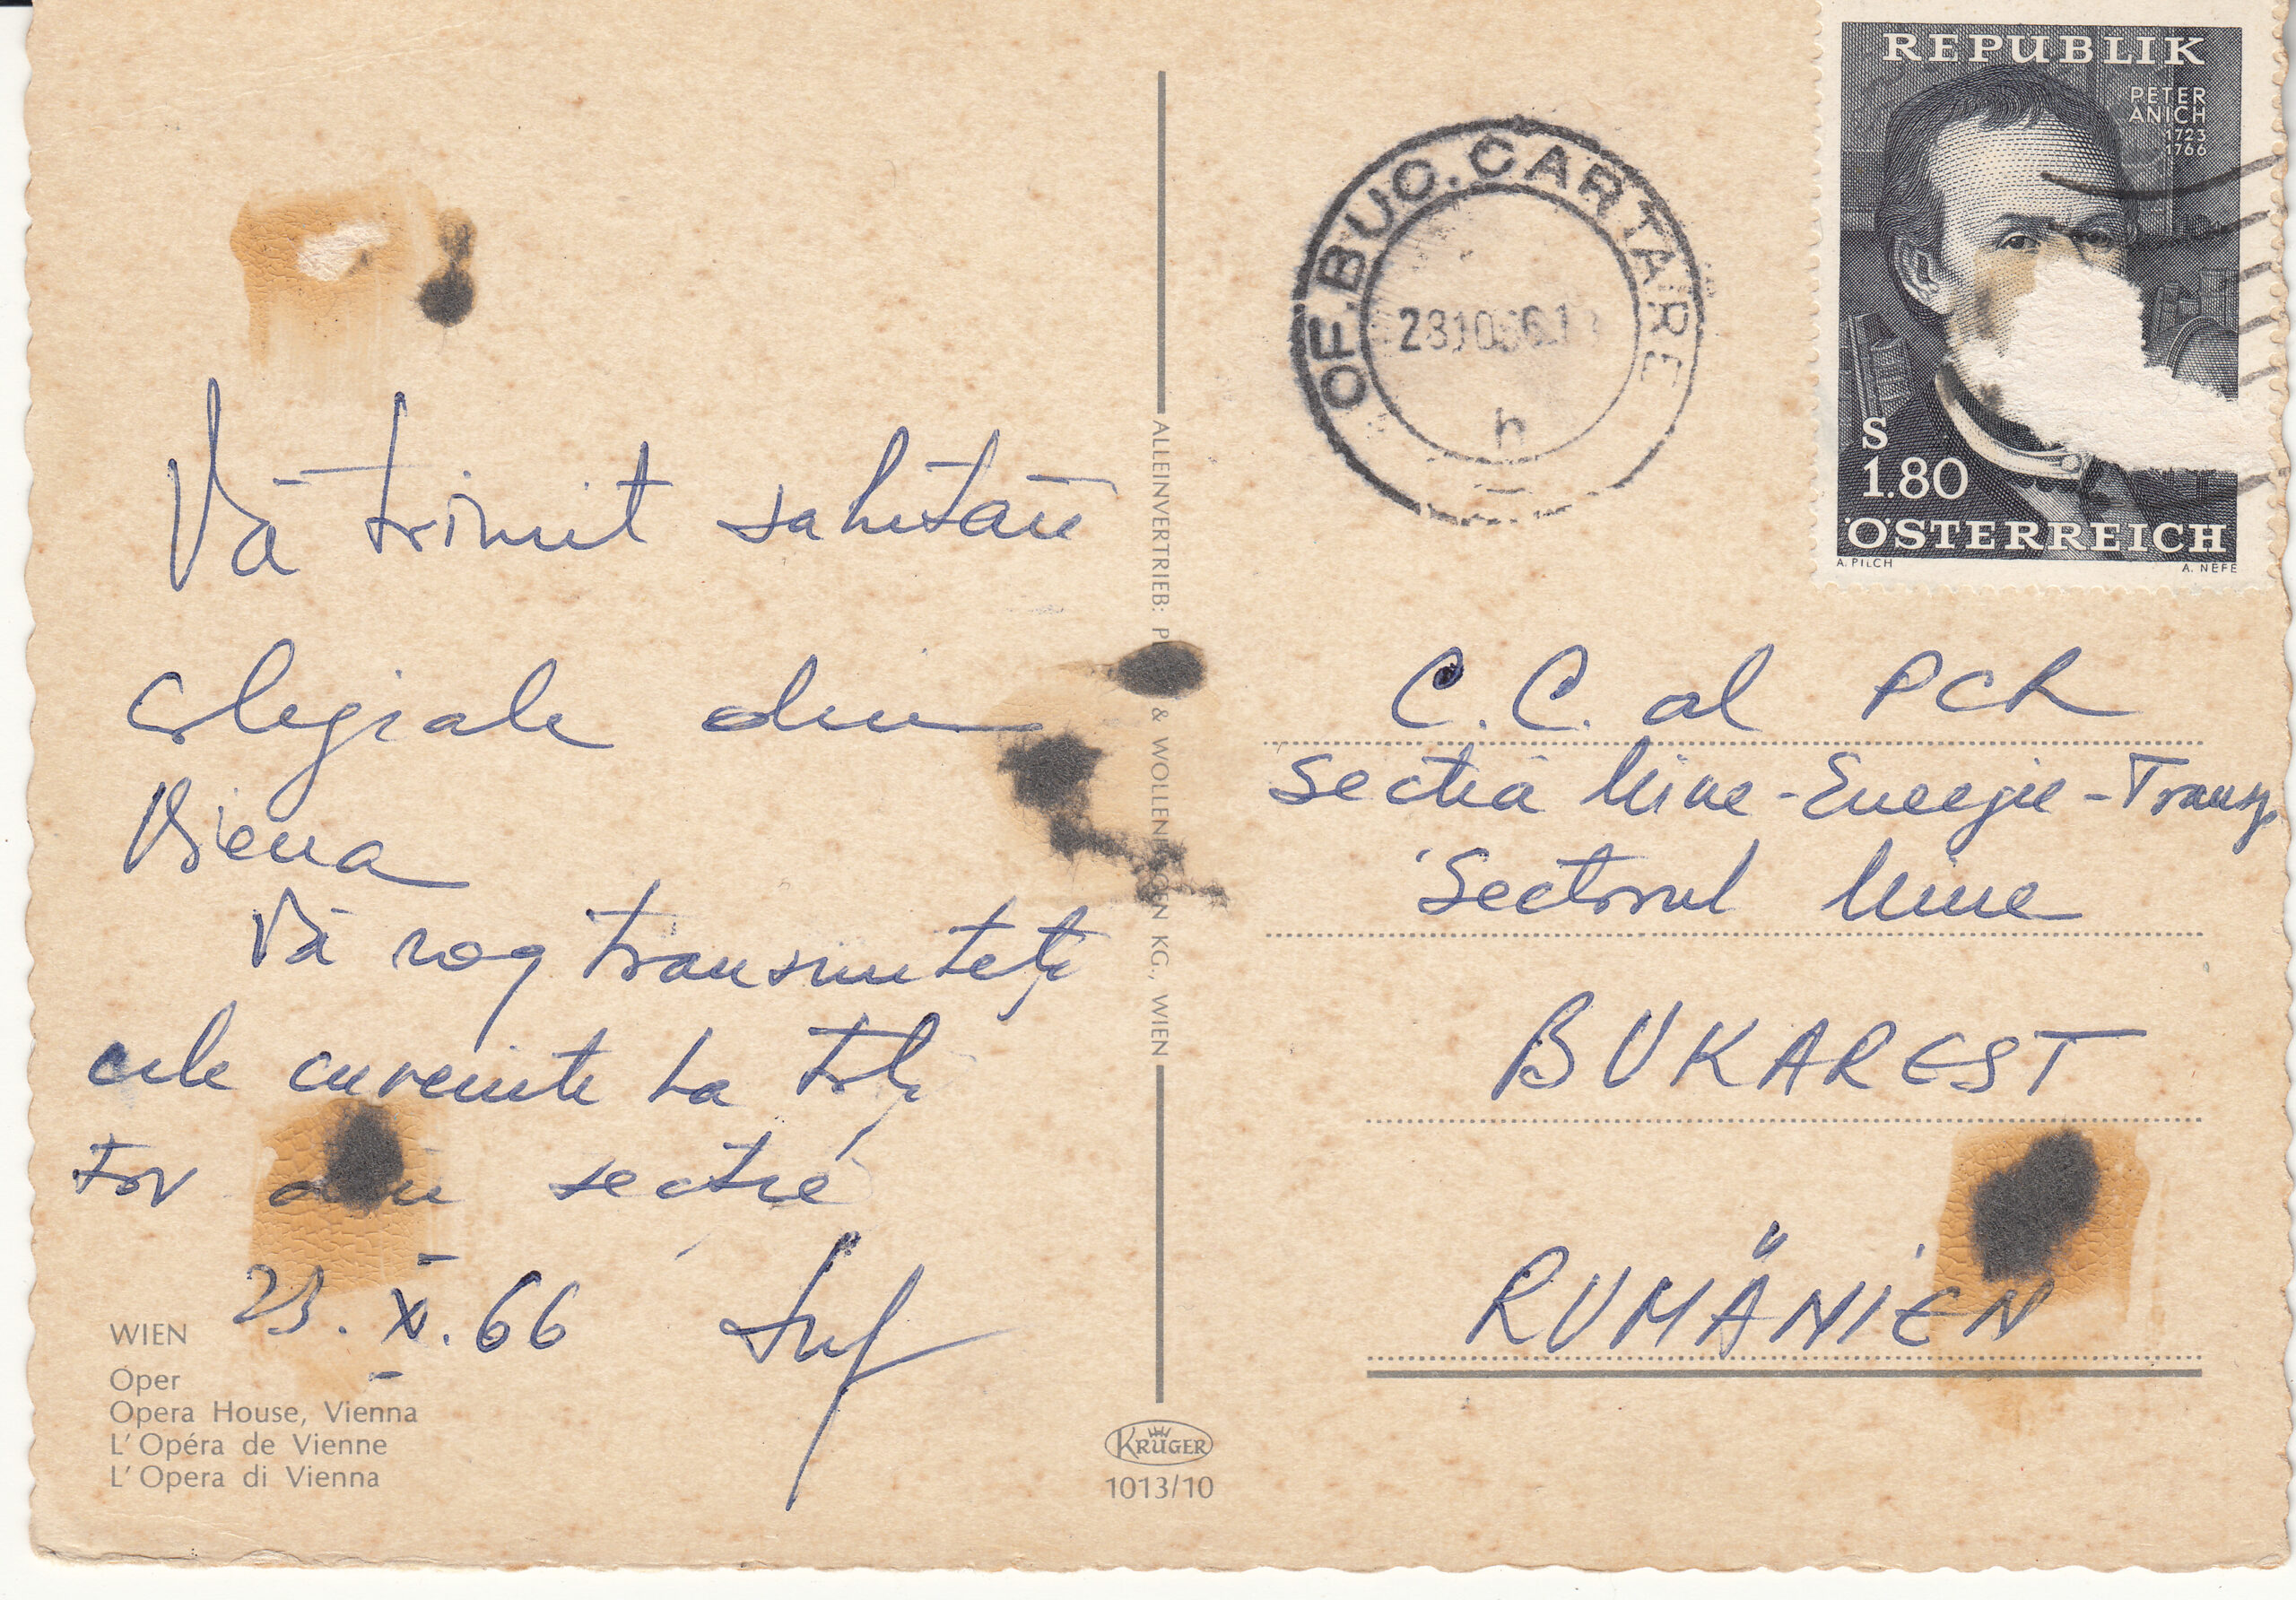 Vă trimit salutări
colegiale din
Viena
Vă rog transmiteți
cele cuvenite la toți
tov din secție
23. X. 66
WIEN
Oper
Opera House, Vienna
L'Opéra de Vienne
L'Opera di Vienna
ALLEINVERTRIEB: P & WOLLEN KG., WIEN
KRÜGER
1013/10
OF. BUC. CARTARE
28.10.66.1
h
REPUBLIK
PETER
ANICH
1723
1766
S
1.80
ÖSTERREICH
A. PILCH
A. NEFE
C.C. al PCR
Secția Mine-Energie-Transp
Sectorul Mine
BUKAREST
RUMÄNIEN